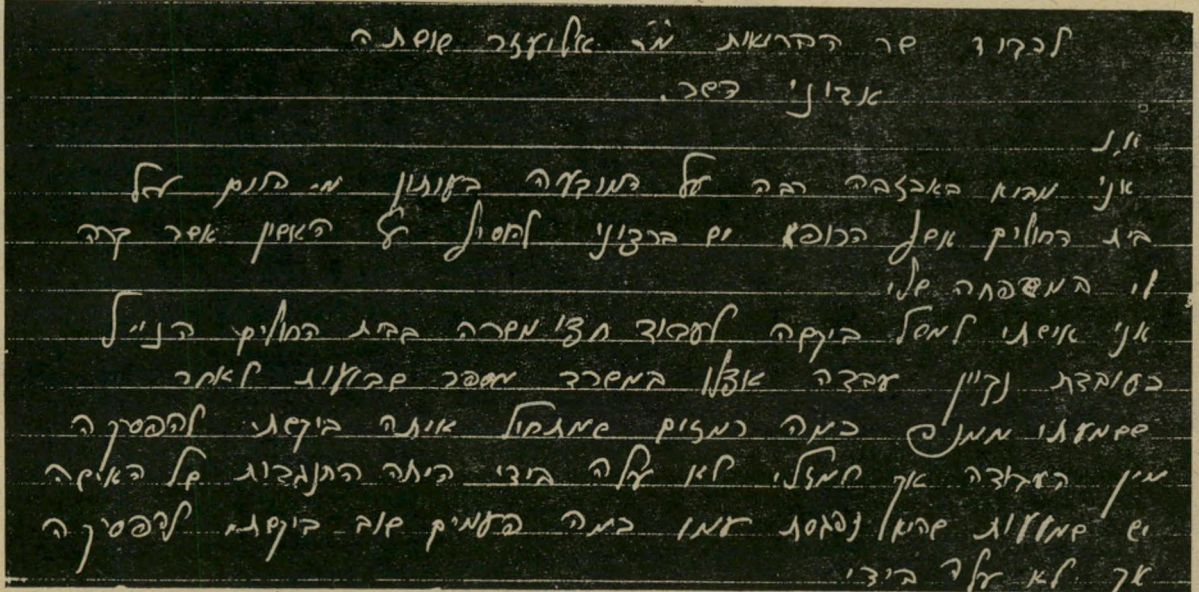 לכבוד שר הבריאות מר אליעזר שוסתה
אדוני השר.
אנ
אני מביא באכזבה רבה על המובעה בעותון מ. היום על
בית החולים אסף הרופא יש ברצוני להוסיף על האסון אשר קרה
לי במשפחה שלי
אני אישתי למשל ביקשה לעבוד חצי משרה בבית החולים הנייל
כעובדת נקיון עבדה אצלו במשרד מספר שבועות לאחר
ששמעתי ממנה כמה רמזים שמתחיל איתה ביקשתי להפסיקה
מין העבודה אך למזלי לא עלה בידי היתה התנגדות של האישה
יש שמועות שהיא נפגסת עמו כמה פעמים שוב ביקשתי להפסיקה
אך לא עלה בידי